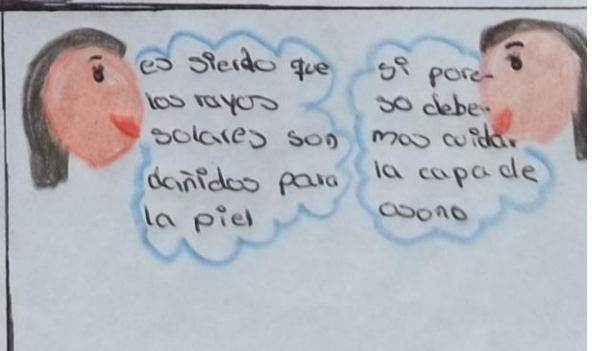 es sierdo que
los rayos
solares son
dañidos para
la piel
si pore-
so debe-
mos cuidar
la capa de
asono